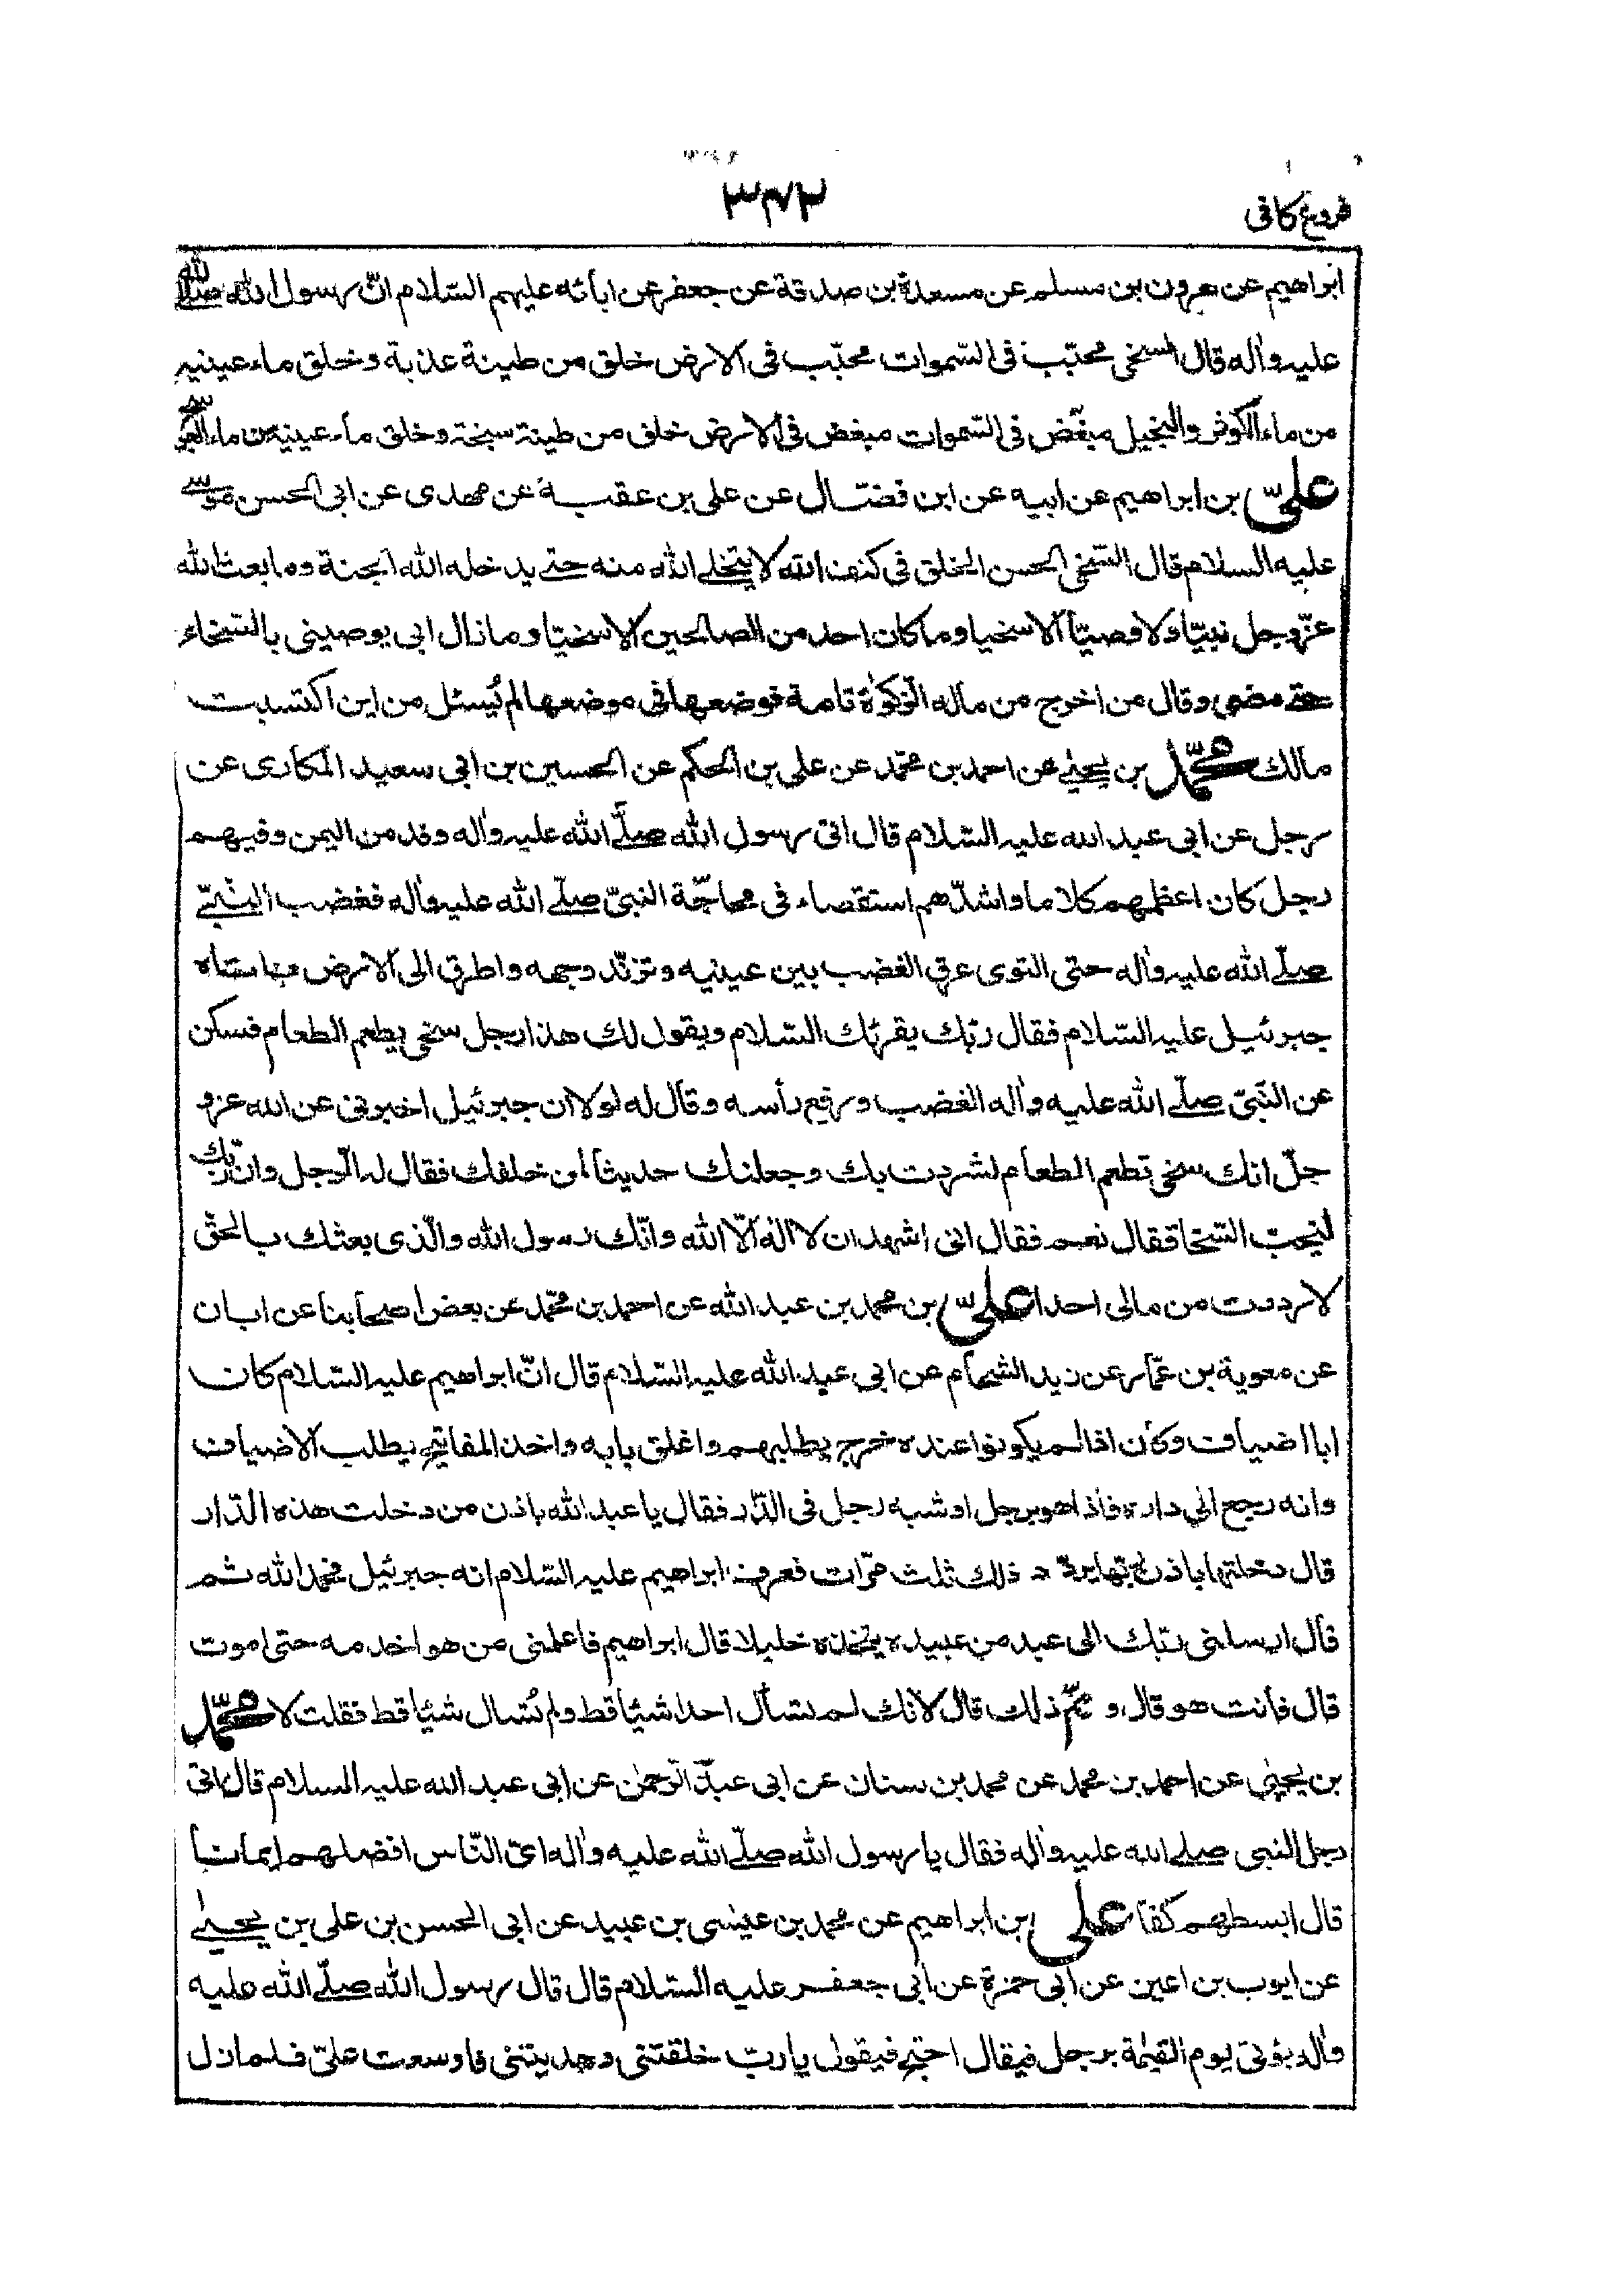 فروع كافى
٣٧٢
ابراهيم عن هرون بن مسلم عن مسعدة بن صدقة عن جعفر عن ابائه عليهم السّلام انّ رسول الله صلّى الله
عليه واٰله قال السخى محبّب فى السّموات محبّب فى الارض خلق من طينة عذبة وخلق ماء عينيه
من ماء الكوثر والبخيل مبغّض فى السّموات مبغض فى الارض خلق من طينة سبخة وخلق ماء عينيه من ماء العوسج
علىّ بن ابراهيم عن ابيه عن ابن فضّال عن على بن عقبة عن مهدى عن ابى الحسن موسى
عليه السلام قال السّخى الحسن الخلق فى كنف الله لا يتخلى الله منه حتى يدخله الله الجنة وما بعث الله
عزّوجل نبيّا ولا وصيّا الا سخيا وما كان احد من الصالحين الا سخيّا وما زال ابى يوصينى بالسّخاء
حتى مضى وقال من اخرج من ماله الزّكوٰة تامة فوضعها فى موضعها لم يُسئل من اين اكتسبت
مالك محمّد بن يحيٰى عن احمد بن محمّد عن على بن الحكم عن الحسين بن ابى سعيد المكارى عن
رجل عن ابى عبد الله عليه السّلام قال اتى رسول الله صلّى الله عليه واٰله وفد من اليمن وفيهم
رجل كان اعظمهم كلاما واشدّهم استقصاء فى محاجّة النبىّ صلّى الله عليه واٰله فغضب النّبىّ
صلّى الله عليه واٰله حتى التوى عرق الغضب بين عينيه وتربّد وجهه واطرق الى الارض فاتاه
جبرئيل عليه السّلام فقال ربّك يقرئك السّلام ويقول لك هذا رجل سخى يطعم الطعام فسكن
عن النّبىّ صلّى الله عليه واٰله الغضب ورفع رأسه وقال له لولا ان جبرئيل اخبرنى عن الله عزو
جلّ انك سخى تطعم الطعام لشردت بك وجعلتك حديثا لمن خلفك فقال له الرّجل وان ربّك
ليحبّ السّخا فقال نعم فقال انى اشهد ان لا اله الّا الله وانّك رسول الله والّذى بعثك بالحقّ
لا رددت من مالى احدا علىّ بن محمد بن عبد الله عن احمد بن محمّد عن بعض اصحابنا عن ابان
عن معوية بن عمّار عن زيد الشحام عن ابى عبد الله عليه السّلام قال انّ ابراهيم عليه السّلام كان
ابا اضياف وكان اذا لم يكونوا عنده خرج يطلبهم واغلق بابه واخذ المفاتيح يطلب الاضياف
وانه رجع الى داره فاذا هو برجل او شبه رجل فى الدّار فقال يا عبد الله باذن من دخلت هذه الدّار
قال دخلتها باذن ربّها يردّد ذلك ثلث مرّات فعرف ابراهيم عليه السّلام انه جبرئيل فحمد الله ثم
قال ارسلنى ربّك الى عبد من عبيده يتخذه خليلا قال ابراهيم فاعلمنى من هو اخدمه حتى اموت
قال فانت هو قال و ممّ ذلك قال لانك لم تسأل احدا شيئا قط ولم تُسال شيئا قط فقلت لا محمّد
بن يحيٰى عن احمد بن محمد عن محمد بن سنان عن ابى عبد الرّحمٰن عن ابى عبد الله عليه السلام قال اتى
رجل النبى صلى الله عليه واٰله فقال يا رسول الله صلّى الله عليه واٰله اىّ النّاس افضلهم ايمانا
قال ابسطهم كفّا علىّ بن ابراهيم عن محمد بن عيسى بن عبيد عن ابى الحسن بن على بن يحيٰى
عن ايوب بن اعين عن ابى حمزة عن ابى جعفر عليه السّلام قال قال رسول الله صلّى الله عليه
واٰله يؤتى يوم القيٰمة برجل فيقال احتج فيقول يا ربّ خلقتنى وهديتنى فاوسعت علىّ فلم ازل